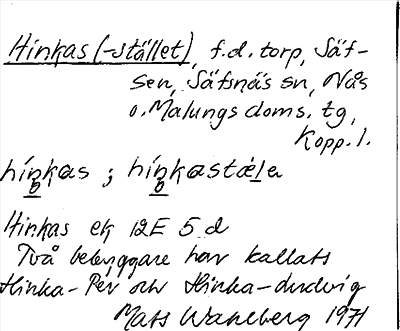 Hinkas (-stället), f.d. torp, Säf-
sen, Säfsnäs sn, Nås
o. Malungs doms. tg,
Kopp. l.
hiṇkas ; hiṇkastæla
Hinkas ek 12E 5 d
Två bebyggare har kallats
Hinka-Per och Hinka-Ludvig
Mats Wahlberg 1971